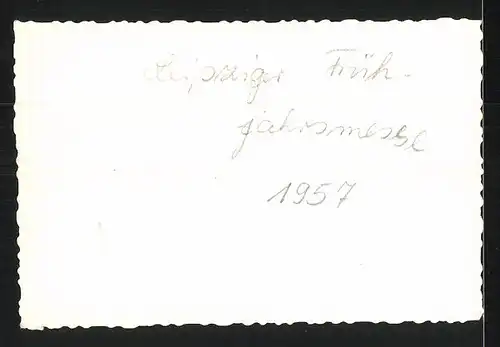 Leipziger Früh-
jahrsmesse
1957